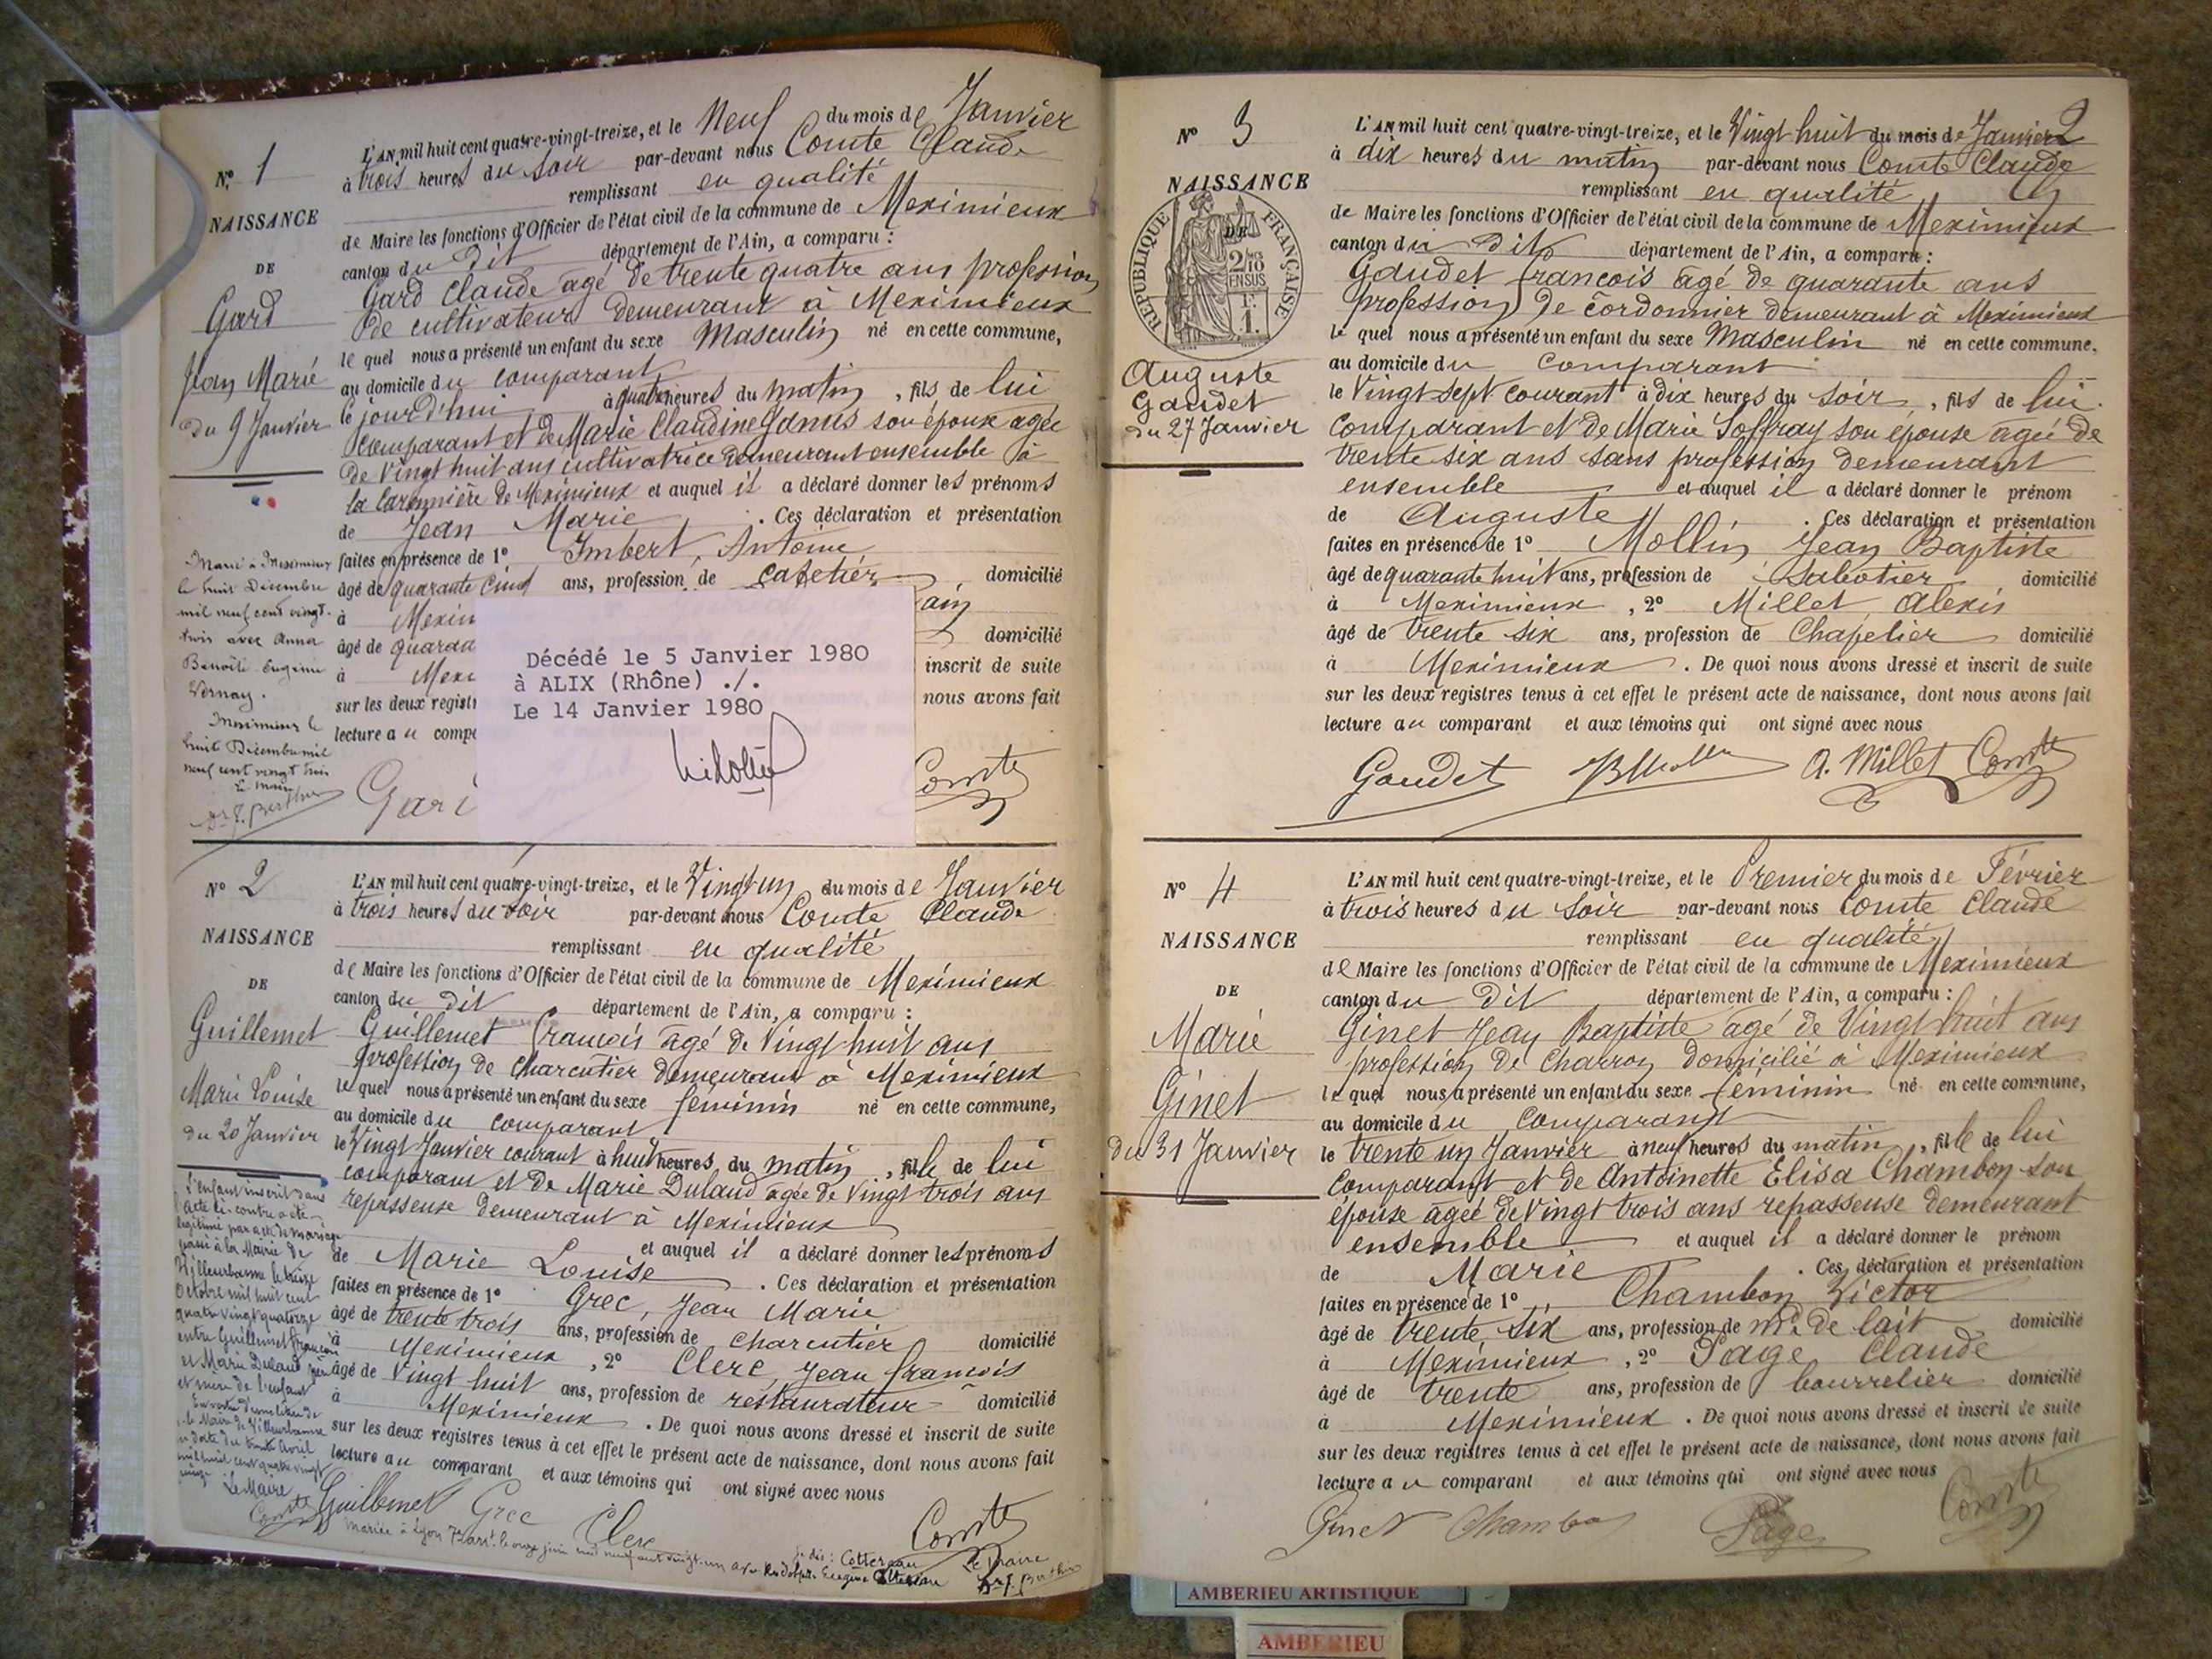 N° 1
NAISSANCE
DE
Gard
Jean Marie
Du 9 Janvier
L'AN mil huit cent quatre-vingt-treize, et le Neuf du mois de Janvier
à trois heures du soir par-devant nous Comte Claude
remplissant en qualité
de Maire les fonctions d'Officier de l'état civil de la commune de Meximieux
canton du dit département de l'Ain, a comparu :
Gard Claude agé de trente quatre ans profession
de cultivateur demeurant à Meximieux
le quel nous a présenté un enfant du sexe Masculin né en cette commune,
au domicile du comparant
le jourd'hui à quatre heures du matin, fils de lui
comparant et de Marie Claudine son épouse agée
de Vingt huit ans cultivatrice demeurant ensemble à
la de Meximieux et auquel il a déclaré donner les prénoms
de Jean Marie . Ces déclaration et présentation
faites en présence de 1° Imbert, Antoine
âgé de quarante cinq ans, profession de cafetier domicilié
à Mexim
âgé de quaran domicilié
à Mexi inscrit de suite
sur les deux regist nous avons fait
lecture au comp
Gar
Comte
Marié à Meximieux
le huit Décembre
mil neuf cent vingt-
trois avec Anna
Benoîte Eugénie
Vernay.
Meximieux le
huit Décembre mil
neuf cent vingt trois
Le Maire
Dr J. Berthier
Décédé le 5 Janvier 1980
à ALIX (Rhône) ./.
Le 14 Janvier 1980
N° 2
NAISSANCE
DE
Guillemet
Marie Louise
du 20 Janvier
L'AN mil huit cent quatre-vingt-treize, et le Vingt un du mois de Janvier
à trois heures du soir par-devant nous Comte Claude
remplissant en qualité
de Maire les fonctions d'Officier de l'état civil de la commune de Meximieux
canton du dit département de l'Ain, a comparu :
Guillemet François agé de Vingt huit ans
profession de charcutier demeurant à Meximieux
le quel nous a présenté un enfant du sexe féminin né en cette commune,
au domicile du comparant
le Vingt Janvier courant à huit heures du matin, fille de lui
comparant et de Marie Dulaud agée de Vingt trois ans
repasseuse demeurant à Meximieux
et auquel il a déclaré donner les prénoms
de Marie Louise . Ces déclaration et présentation
faites en présence de 1° Grec, Jean Marie
âgé de trente trois ans, profession de charcutier domicilié
à Meximieux, 2° Clerc, Jean François
âgé de Vingt huit ans, profession de restaurateur domicilié
à Meximieux . De quoi nous avons dressé et inscrit de suite
sur les deux registres tenus à cet effet le présent acte de naissance, dont nous avons fait
lecture au comparant et aux témoins qui ont signé avec nous
Guillemet Grec Clerc Comte
L'enfant inscrit dans
l'acte ci-contre a été
légitimé par acte de mariage
passé à la Mairie de
Villeurbanne le treize
Octobre mil huit cent
quatre vingt quatorze
entre Guillemet François
et Marie Dulaud père
et mère de l'enfant
le Maire de Villeurbanne
en date du trente Avril
mil huit cent quatre vingt
quinze Le Maire
Comte
Mariée à Lyon 7e arrt. le onze juin mil neuf cent vingt-un avec Rodolphe Eugène
je dis : Cottereau
Le Maire
Dr J. Berthier
N° 3
NAISSANCE
DE
RÉPUBLIQUE FRANÇAISE
2/10
EN SUS
1F.
1.
Auguste
Gaudet
du 27 Janvier
2
L'AN mil huit cent quatre-vingt-treize, et le Vingt huit du mois de Janvier
à dix heures du matin par-devant nous Comte Claude
remplissant en qualité
de Maire les fonctions d'Officier de l'état civil de la commune de Meximieux
canton du dit département de l'Ain, a comparu :
Gaudet François agé de quarante ans
profession de cordonnier demeurant à Meximieux
le quel nous a présenté un enfant du sexe Masculin né en cette commune,
au domicile du comparant
le Vingt sept courant à dix heures du soir, fils de lui
comparant et de Marie Soffray son épouse agée de
trente six ans sans profession demeurant
ensemble et auquel il a déclaré donner le prénom
de Auguste . Ces déclaration et présentation
faites en présence de 1° Mollin Jean Baptiste
âgé de quarante huit ans, profession de Sabotier domicilié
à Meximieux, 2° Millet Alexis
âgé de trente six ans, profession de Chapelier domicilié
à Meximieux . De quoi nous avons dressé et inscrit de suite
sur les deux registres tenus à cet effet le présent acte de naissance, dont nous avons fait
lecture au comparant et aux témoins qui ont signé avec nous
Gaudet A. Millet Comte
N° 4
NAISSANCE
DE
Marie
Ginet
du 31 Janvier
L'AN mil huit cent quatre-vingt-treize, et le Premier du mois de Février
à trois heures du soir par-devant nous Comte Claude
remplissant en qualité
de Maire les fonctions d'Officier de l'état civil de la commune de Meximieux
canton du dit département de l'Ain, a comparu :
Ginet Jean Baptiste agé de Vingt huit ans
profession de Charron domicilié à Meximieux
le quel nous a présenté un enfant du sexe féminin né en cette commune,
au domicile du comparant
le trente un Janvier à neuf heures du matin, fille de lui
comparant et de Antoinette Elisa Chambon son
épouse agée de Vingt trois ans repasseuse demeurant
ensemble et auquel il a déclaré donner le prénom
de Marie . Ces déclaration et présentation
faites en présence de 1° Chambon Victor
âgé de trente six ans, profession de md de lait domicilié
à Meximieux, 2° Page Claude
âgé de trente ans, profession de bourrelier domicilié
à Meximieux . De quoi nous avons dressé et inscrit de suite
sur les deux registres tenus à cet effet le présent acte de naissance, dont nous avons fait
lecture au comparant et aux témoins qui ont signé avec nous
Ginet Chambon Page Comte
AMBERIEU ARTISTIQUE
AMBERIEU